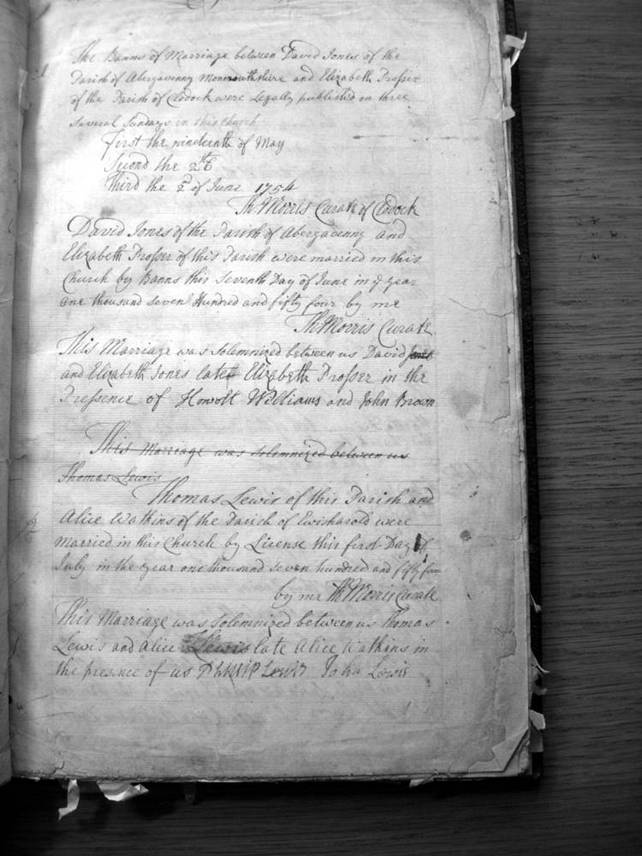 The Banns of Marriage between David Jones of the
Parish of Abergavenny Monmouthshire and Elizabeth Prosser
of the Parish of Clodock were Legally published on three
several Sundays in this Church
First the nineteenth of May
Second the 26
Third the 2 of June 1754
Th Morris Curate of Clodock
David Jones of the Parish of Abergavenny and
Elizabeth Prosser of this Parish were married in this
Church by Banns this Seventh Day of June in ye year
one thousand seven Hundred and fifty four by me
Th Morris Curate
This Marriage was solemnized between us David Jones
and Elizabeth Jones late Elizabeth Prosser in the
Pressence of Howell Williams and John Brown
This Marriage was solemnized between us
Thomas Lewis
Thomas Lewis of this Parish and
Alice Watkins of the Parish of Ewisharold were
married in this Church by License this first Day of
July in the year one thousand seven hundred and fifty four
by me Th Morris Curate
This Marriage was solemnized between us Thomas
Lewis and Alice Lewis late Alice Watkins in
the presence of us Philip Lewis John Lewis